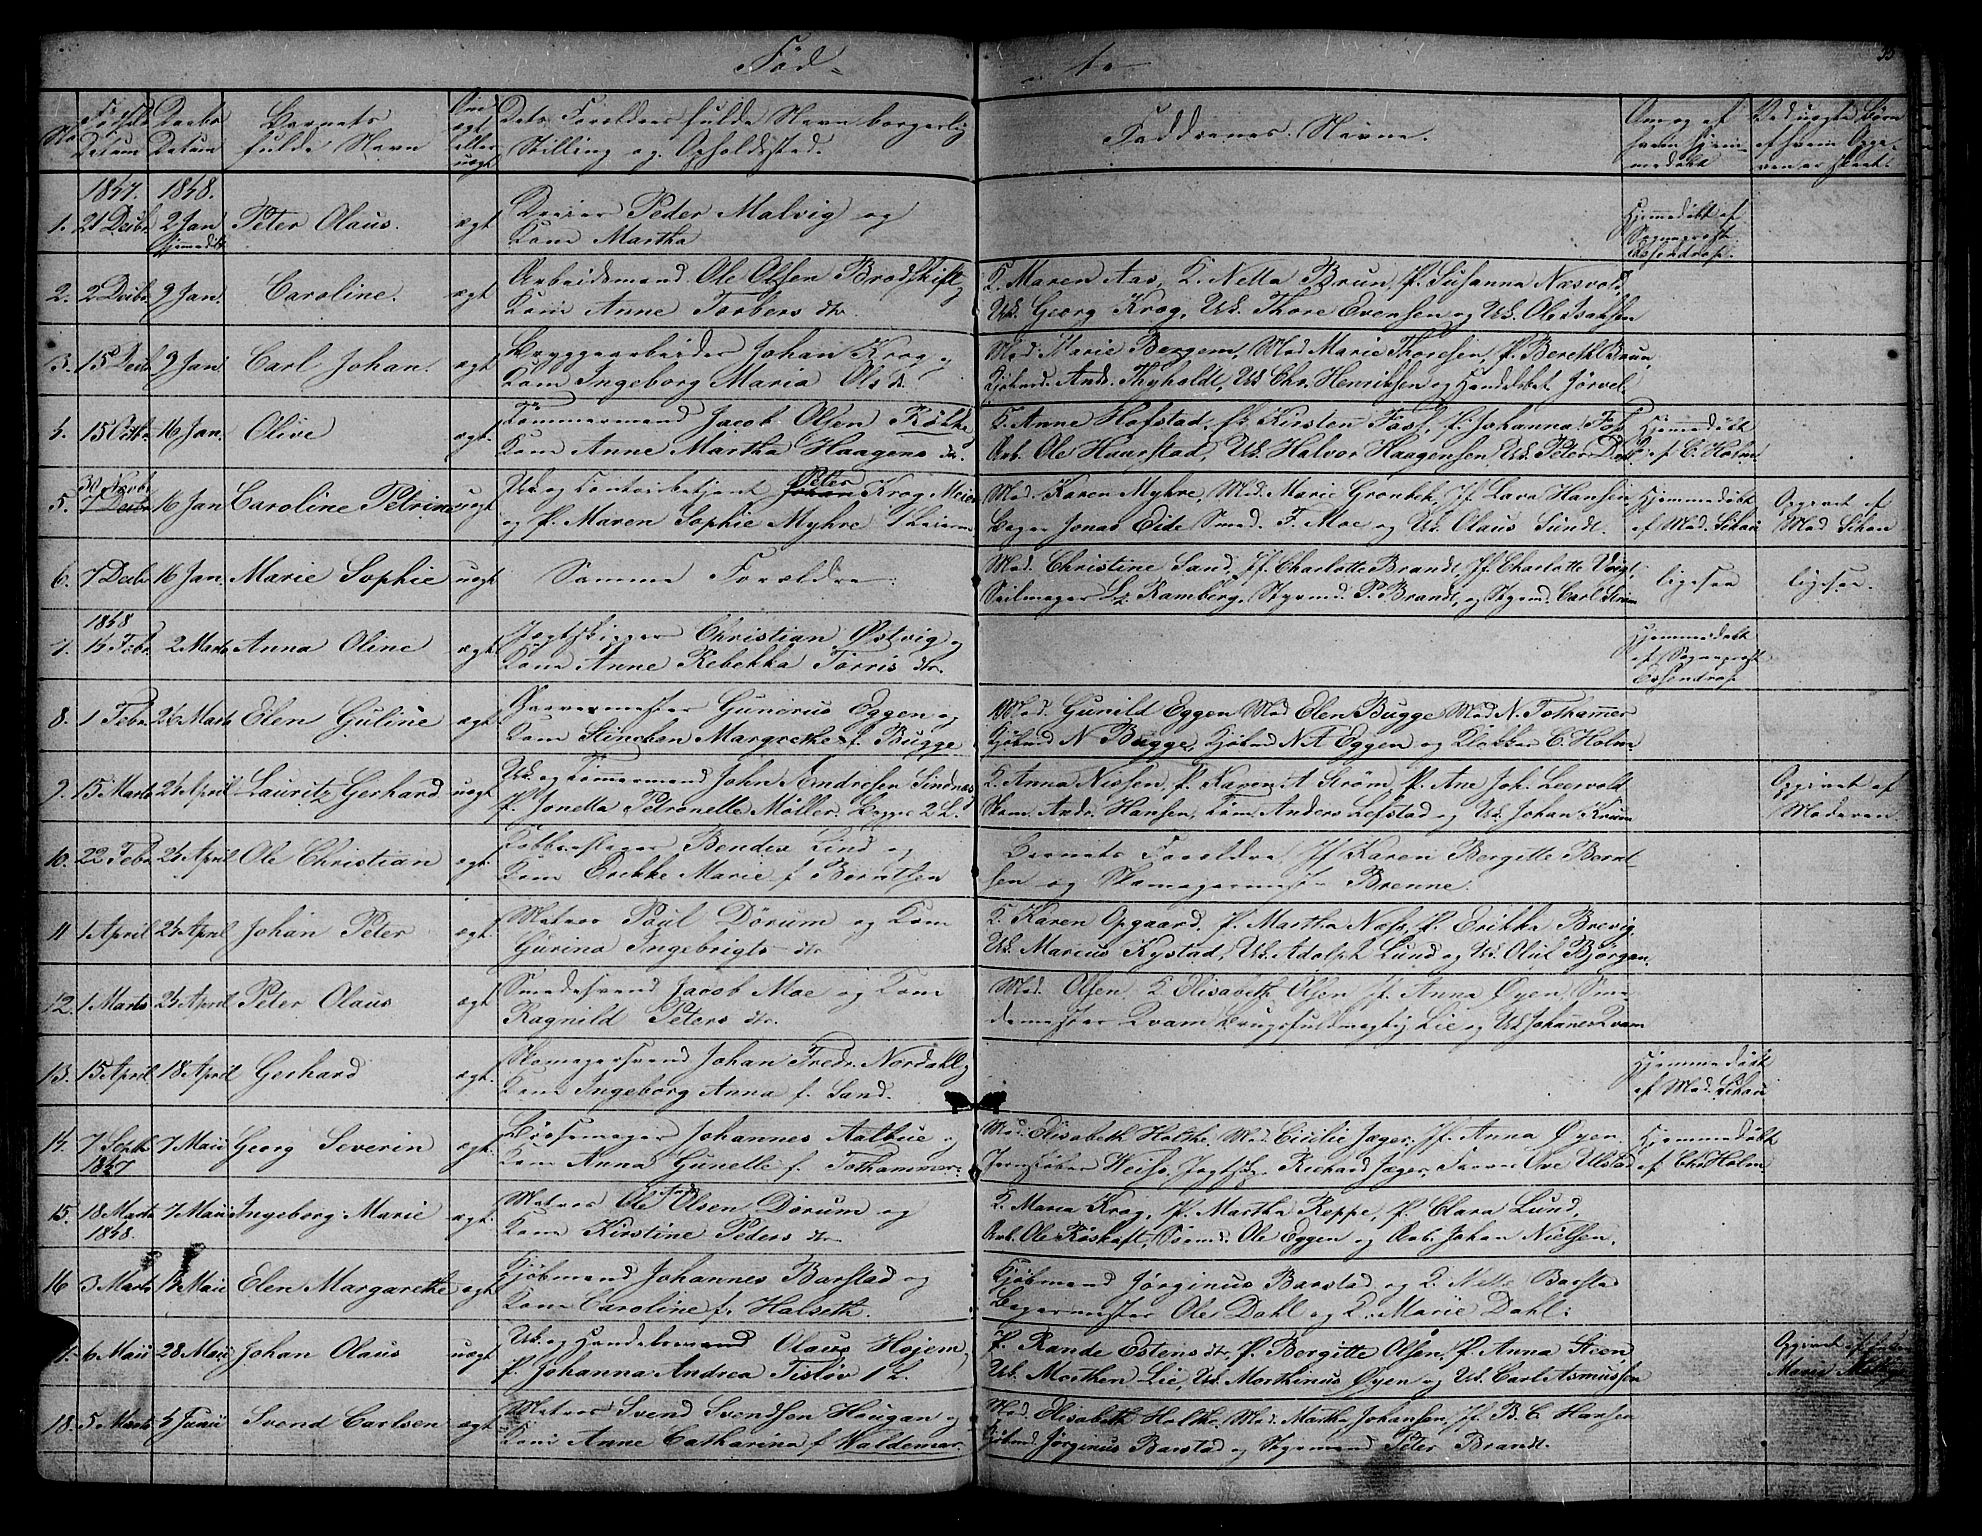 Fød-
-te
35
No
Fødsels Datum
Daabs Datum
Barnets fulde Navn
Om ægte eller uægt
Dets Forældres fulde Navn borgerlig
Stilling og Opholdsted.
Faddernes Navne.
Om og af hvem hjemmedøbt
Ved uægte Børn af hvem Opgaven er skeet.
1847. 1848.
1. 21 Decbr 2 Jan hjemmedøbt Peter Olaus. ægt
Peder Malvig og
Kone Martha
Hjemmedøbt af
Sogneprest
Essendrop.
2. 2 Decbr 9 Jan. Caroline. ægt
Arbeidsmand Ole Olsen Brodskift og
Kone Anne Torbers dtr
K. Maren Aas, K. Netta Brun, P. Susanna Næsvold,
Uk. Georg Krog, Uk. Thore Evensen og Uk. Ole Isaksen
3. 15 Decb 9 Jan Carl Johan. ægt
Bryggearbeider Johan Krog og
Kone Ingeborg Maria Ols dr.
Mad. Marie Bergem, Mad Marie Thoresen, P. Bereth Brun,
Kjøbmd. Andr. Thyholdt, Uk. Chr. Henriksen og Handelsbet. Jørvel
4. 15 Octbr 16 Jan. Olive ægt
Tømmermand Jacob Olsen Røkke
Kone Anne Martha Haagens dr.
K. Anne Hofstad, fk. Kirsten Foss, P. Johanna Foss
Arb. Ole Haarstad, Uk. Halvor Haagensen, Uk. Peter
Hjemmedøbt
af C. Holm.
30 Novbr
5. 7 Decbr 16 Jan Caroline Petrine uægt
Uk. og Contorbetjent Johan Peter Krog Meier
og P. Maren Sophie Myhre 1 Leierm
Mad. Karen Myhre, Mad. Marie Grønbek, Jf. Lava Hansen
Læge Jonas Eide, Smed. F. Moe og Uk. Olaus Sundt.
Hjemmedøbt
af Mad. Schau
Opgivet af
Mad Schau
6. 7 Decbr 16 Jan. Marie Sophie uægt
Samme Forældre.
Mad. Christine Sand, Jf. Charlotte Brandt, Jf. Charlotte Voigt,
Seilmager Lz. Ramberg, Styrmd. P. Brandt, og Styrmd. Carl Strøm
ligesaa
ligesaa.
1848
7. 14 Febr 2 Marts Anna Oline ægt
Jægtskipper Christian Østvig og
Kone Anne Rebekka Torris dtr.
Hjemmedøbt
af Sogneprest
Essendrop
8. 1 Febr 26 Marts Elen Guline ægt
Garvermester Gunerus Eggen og
Kone Stinchen Margrethe f. Bugge
Mad. Gunild Eggen Mad Elen Bugge Mad N. Folhammer
Kjøbmd N Bugge, Kjøbmd N A Eggen og Klokker C. Holm
9. 15 Marts 24 April Lauritz Gerhard uægt
Uk. og Tømermand John Endresen Sindnæs
P. Jonetta Petronelle Møller. Begge 2 L.
K. Anna Nissen, P. Karen A Strøm, P. Ane Joh. Leervold
Andr. Hansen, Tøm. Anders Lefstad og Uk. Johan Krum
Opgivet af
Moderen
10. 22 Febr 24 April Ole Christian ægt.
Kobberslager Bendix Lind og
Kone Erikke Marie f Berntsen
Barnets Forældre, Jf Karen Bergitte Bernt-
sen og Skomagermester Brenne.
11 1 April 24 April Johan Peter ægt.
Matros Poul Dørum og Kone
Gurina Ingebrigts dtr
K. Karen Opgaard, P. Martha Næss, P. Erikka Brevig,
Uk. Marius Kystad, Uk. Adolph Lund og Uk. Oluf Bjørgan.
12. 1 Marts 24 April Peter Olaus ægt
Smedesvend Jacob Moe og Kone
Ragnild Peters dr.
Mad. Olsen, K. Elisabeth Olsen Jf. Anna Øyen, Sme-
demester Qvam Brugsfuldmægtig Lie og Uk Johannes Qvam
13. 15 April 18 April Gerhard ægt.
Skomagersvend Johan Fredr. Nordahl og
Kone Ingeborg Anna f. Sand.
Hjemmedøbt
af Mad. Schau
14. 7 Septbr 1847 7 Maii Georg Severin ægt.
Bøssemager Johannes Aalbue og
Kone Anna Gunelle f. Folhammer.
Mad. Elisabeth Holthe, Mad. Cicilie Jæger, Jf. Anna Øyen.
Weiss, Jægtsk. Richard Jæger, Farver Ove Ulstad
Hjemmedøbt
af Chr Holm
15. 18 Marts 1848. 7 Maii Ingeborg Marie ægt.
Matros Ole Olsen Dørum og
Kone Kirstine Peders dtr
K. Maria Krog, P. Martha Reppe, P. Clara Lund,
Arb. Ole Røskaft, Tømd. Ole Eggen og Arb. Johan Nielsen.
16 3 Marts 14 Maii Elen Margarethe ægt
Kjøbmand Johannes Barstad og
Kone Caroline f. Halseth.
Kjøbmand Jørginus Barstad og K. Nette Barstad
Bagermester Ole Dahl og K. Marie Dahl.
17. 6 Maii 28 Maii Johan Olaus uægt
Uk. og Handelsmand Olaus Højem,
P. Johanna Andrea Tisløv 1 L.
P. Rande Estens dtr, P. Bergitte Olsen, P. Anna Steen
Uk. Morthen Lie, Uk. Morthinus Øyen og Uk. Carl Asmussen
Opgivet af
Marie
18. 5 Marts 4 Junii Svend Carlsen ægt
Matros Svend Svendsen Haugan og
Kone Anne Catharina f Waldemar.
Mad. Elisabeth Holthe, Mad. Martha Johansen, Jf. B. C. Hansen
Kjøbmd. Jørginus Barstad og Styrmand Peter Brandt.